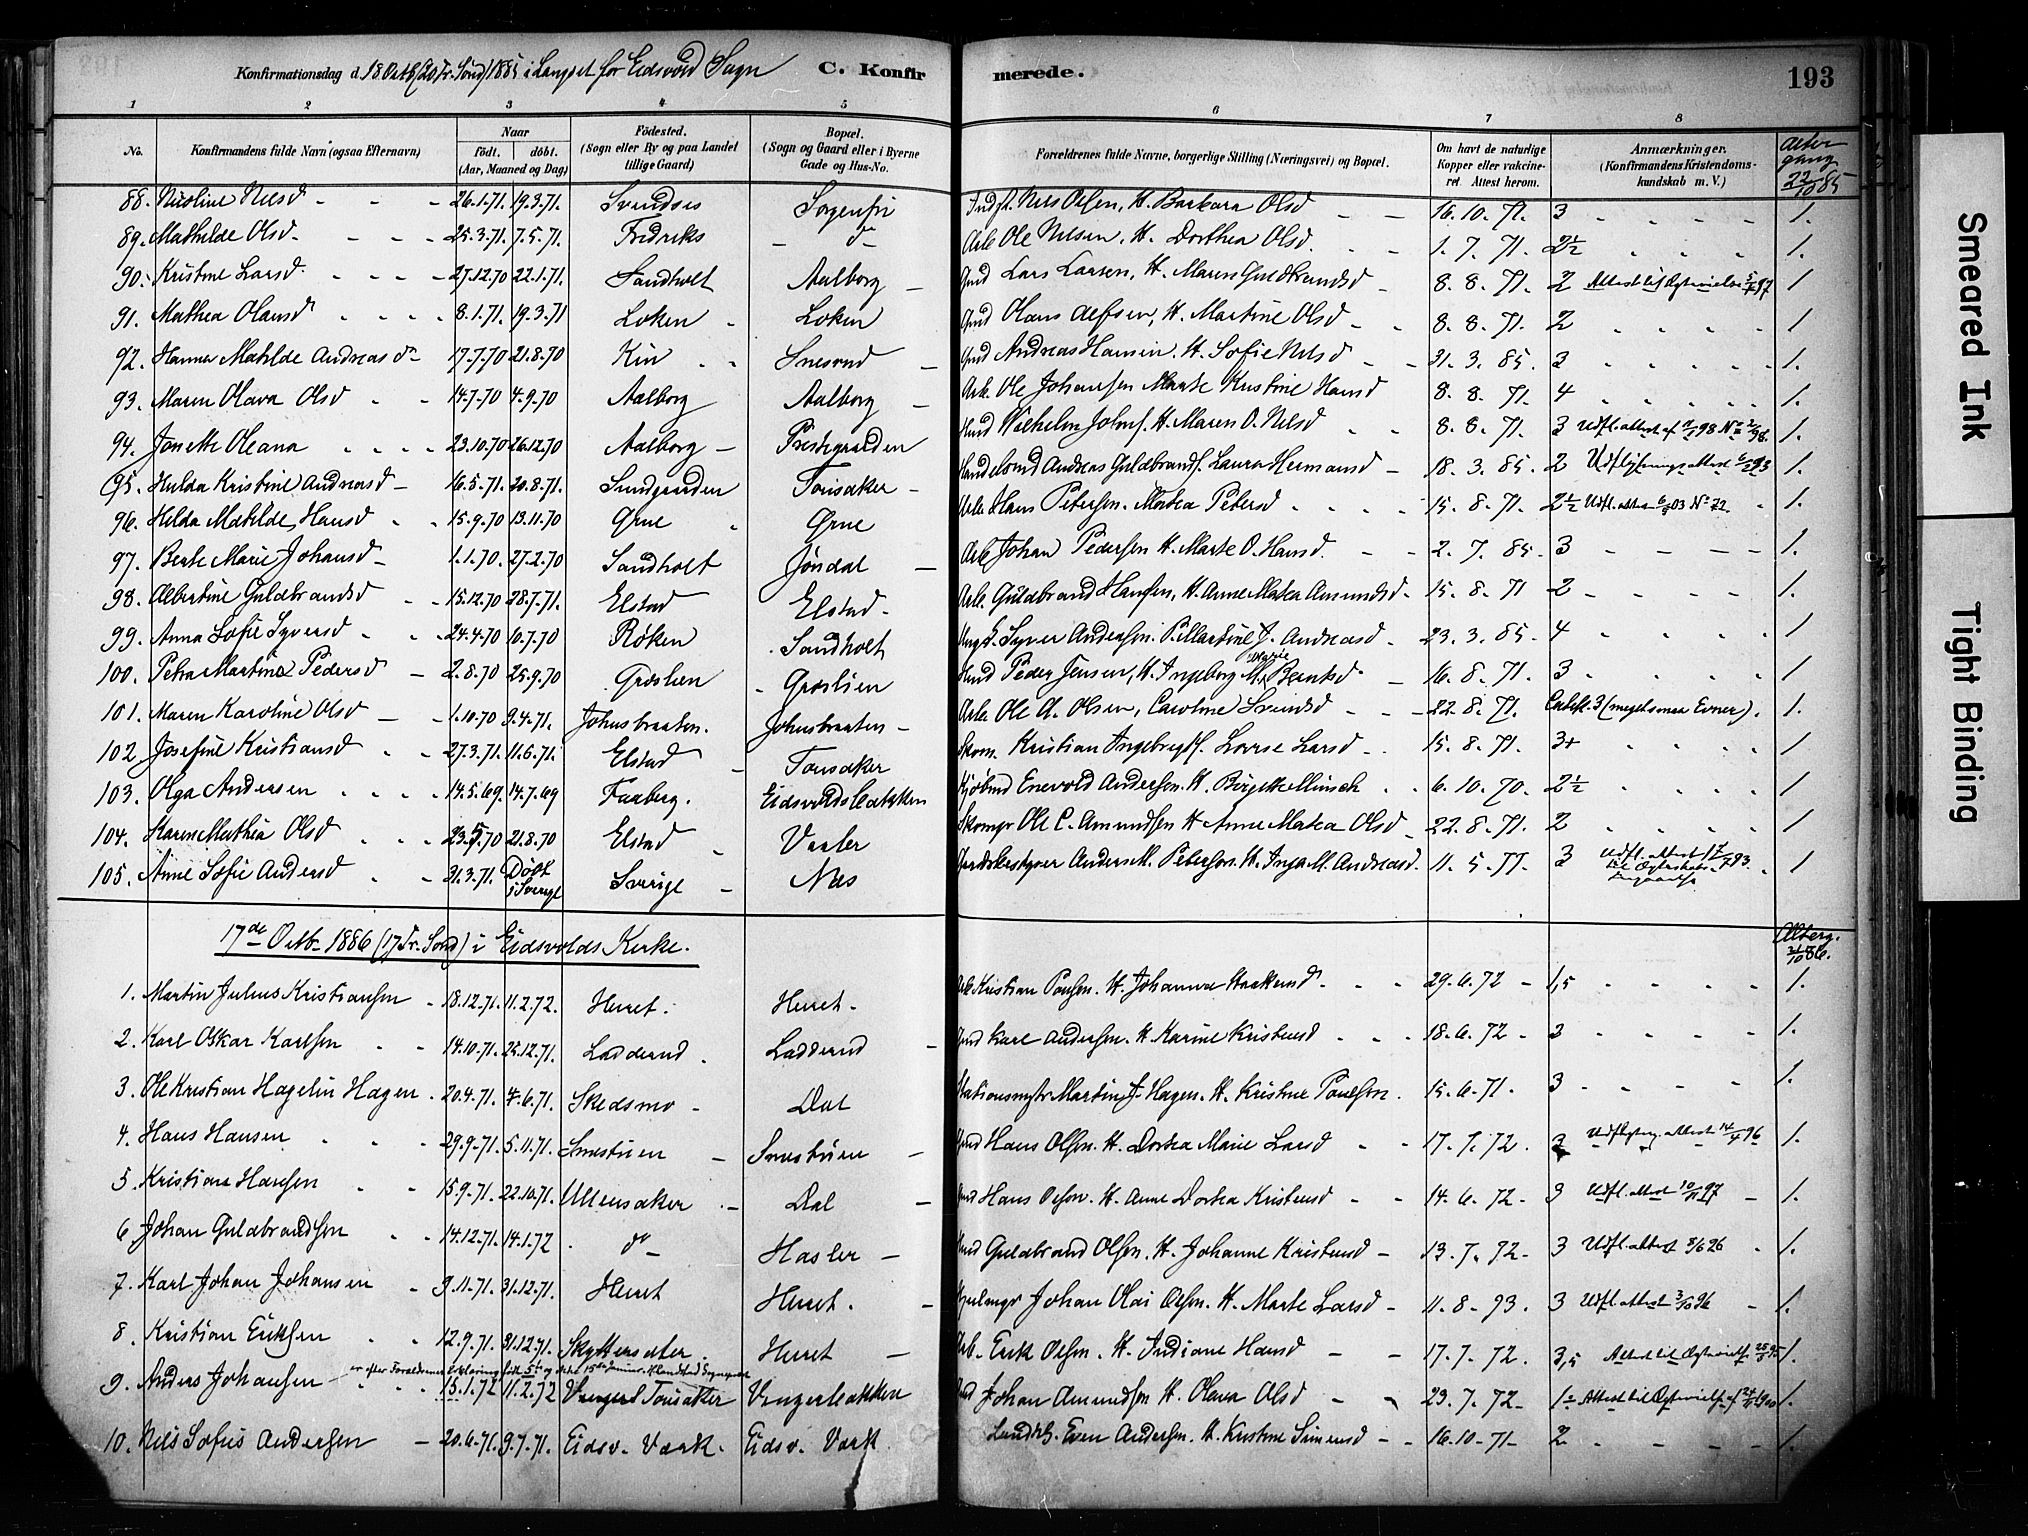 Konfirmationsdag d. 18 Octb (20 Tr. Sønd) 1885 i Langset for Eidsvold Sogn C. Konfirmerede. 193
1 2 3 4 5 6 7 8
No. Konfirmandens fulde Navn (ogsaa Efternavn) Naar født. døbt. (Aar, Maaned og Dag) Fødested. (Sogn eller By og paa Landet tillige Gaard) Bopæl. (Sogn og Gaard eller i Byerne Gade og Hus-No. Forældrenes fulde Navne, borgerlige Stilling (Næringsvei) og Bopæl. Om havt de naturlige Kopper eller vakcineret Attest herom. Anmærkninger. (Konfirmandens Kristendomskundskab m. V.) Altergang 22/10 85
88. Nicoline Nilsd 26.1.71. 19.3.71. Sorgenfri Nils Olsen, H. Barbara Olsd 16.10.71. 3 1.
89. Mathilde Olsd. 25.3.71. 7.5.71. Fredriks do Arb. Ole Nilsen, H. Dorthea Olsd. 1.7.71. 2½ 1.
90. Kristine Larsd. 27.12.70 22.1.71. Sandholt Aalborg Gmd Lars Larsen, H. Maren Guldbrandsd 8.8.71. 2 Attest til Ægtevielse 97 1
91. Mathea Olansd 8.1.71. 19.3.71 Løken Løken Gmd Olaus H. Martine Olsd 8.8.71. 2 1
92. Hanna Matilde Andreasd 17.7.70 21.8.70 Andreas Hansen. H. Sofie Nilsd 31.3.85. 3 1.
93. Maren Olava Olsd 14.7.70 4.9.70 Aalborg Aalborg Arb. Ole Johansen Marte Kristine Hansd 8.8.71. 4 1.
94. Jonette Oleana 23.10.70 26.12.70 Aalborg Prestegaarden Hmd Wilhelm Johns. H. Maren O. Nilsd 8.8.71. 3 Udfl. attest 98 1.
95. Hulda Kristine Andreasd 16.5.71. 20.8.71. Sundgaarden Tønsaker Handelsmd Andreas Guldbrands. Laura Hermansd 18.3.85. 2 Udflytningsattest 93 1.
96. Hilda Matilde Hansd 15.9.70 13.11.70 Ørne Ørne Arb. Hans Petersen. Matea Petersd 15.8.71. 2½ Udfl. attest 03 No 72 1.
97. Berte Marie Johansd 1.1.70. 27.2.70 Sandholt Jøndal Arb Johan Pedersen H. Marte O. Hansd. 2.7.85. 3 1.
98. Albertine Guldbrandsd 15.12.70 28.7.71. Elstad Elstad Arb. Guldbrand Hansen, H. Anne Matea Amundsd 15.8.71 2 1.
99. Anna Sofie Syversd 24.4.70 10.7.70 Røken Sandholt Syver Andersen. P. Martine J. Andreasd 23.3.85. 4 1
100. Petra Martine Pedersd 2.8.70 25.9.70 Græslien Græslien Hmd Peder Jensen, H. Ingeborg Marie Berntsd 16.8.71. 3 1
101. Maren Karoline Olsd 1.10.70 9.4.71. Johnsbraaten. Johnsbraaten Arb. Ole A. Olsen, Caroline Svensd 22.8.71. 3 (meget smaa Evner). 1.
102. Josefine Kristiansd 27.3.71. 11.6.71. Elstad Tønsaker Skom. Kristian Ingebrigts. Lovise Larsd 15.8.71. 3+ 1
103. Olga Andersen 14.5.69. 14.7.69 Faaberg. Eidsvoldsbakken Kjøbmd Enevold Andersen. H. Birgitte Münsch 6.10.70. 2½ 1
104. Karen Mathea Olsd 23.5.70 21.8.70 Elstad Vaaler Skomgr Ole C. Amundsen H Anne Matea Olsd 22.8.71. 2 1
105. Anne Sofie Andersd 31.3.71. Døbt i Sverige Sverige Næs Gaardsbestyrer Anders M. Petersen. H. Inga M. Andreasd. 11.5.77. 3 Udfl. attest 17/7 93. 1
17de Octb. 1886 (17 Tr. Sønd) i Eidsvolds Kirke. Alterg. 31/10 86.
1. Martin Julius Kristiansen 18.12.71. 11.2.72. Heret. Heret. Arb Kristian Pausen. H. Johanna Haakensd 29.6.72 1,5 1.
2. Karl Oskar Karlsen 14.10.71. 25.12.71. Ladderud Ladderud Gmd Karl Andersen. H. Karine Kristensd 18.6.72 3 1.
3. Ole Kristian Hagelin Hagen 20.4.71. 4.6.71. Skedsmo Dal Stationsmstr Martin J. Hagen. H. Kristine Poulsen. 15.6.71. 3 1.
4. Hans Hansen 29.9.71. 5.11.71. Smestuen Smestuen Gmd Hans Olsen. H. Dortea Marie Larsd 17.7.72. 3 Udflytng. attest 14/4 96 1.
5. Kristian Hansen 15.9.71. 22.10.71. Ullensaker Dal Gmd Hans Olsen. H. Anne Dortea Kristensd 14.6.72 3 Udfl. attest 10/11 97 1.
6. Johan Guldbrandsen 14.12.71. 14.1.72 do Hasler Gmd Guldbrand Olsen. H. Johanne Kristensd 13.7.72 3 Udfl. attest 5/6 26 1.
7. Karl Johan Johansen 9.11.71. 31.12.71. Heret Heret. Johan Olai Olsen. H. Marte Larsd 11.8.93. 3 Udfl. attest 3/10 96 1.
8. Kristian Eriksen 12.9.71. 31.12.71. Skyttersæter Heret Arb. Erik Olsen. H. Indiane Hansd 17.7.72. 3,5 Attest til Ægtevielse 95 1.
er efter Forældrenes Erklæring født 5te og ikke 15de Januar.
9. Anders Johansen 15.1.72 11.2.72 Tønsaker Vengerbakken Gmd Johan Amundsen H. Olava Olsd 23.7.72. 1 Attest til Ægtevielse 1900 1.
10. Nils Sofus Andersen 20.6.71. 9.7.71. Eidsv. Værk. Eidsv. Værk Landh. Even Andersen. H. Kristine Simensd 16.10.71 2 1.
Smeared Ink
Tight Binding